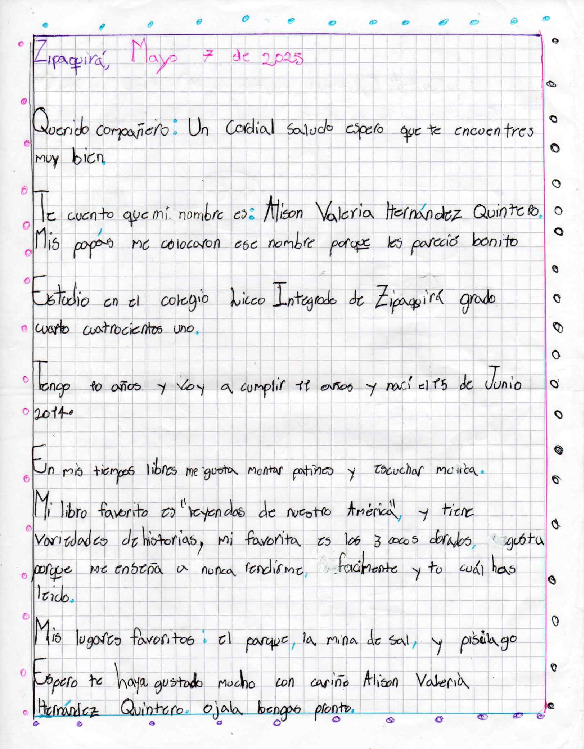 Zipaquirá, Mayo 7 de 2025
Querido compañero: Un Cordial saludo espero que te encuentres
muy bien.
Te cuento que mi nombre es: Alison Valeria Hernández Quintero.
Mis papás me colocaron ese nombre porque les pareció bonito
Estudio en el colegio Liceo Integrado de Zipaquirá grado
cuarto cuatrocientos uno.
Tengo 10 años y voy a cumplir 11 años y nací el 15 de Junio
2014.
En mis tiempos libres me gusta montar patines y escuchar musica.
Mi libro favorito es "leyendas de nuestro América", y tiene
variedades de historias, mi favorita es los 3 cocos dorados, gusta
porque me enseña a nunca rendirme, facilmente y tu cuál has
leido.
Mis lugares favoritos: el parque, la mina de sal, y piscilago
Espero te haya gustado mucho con cariño Alison Valeria
Hernández Quintero. ojala bengas pronto.